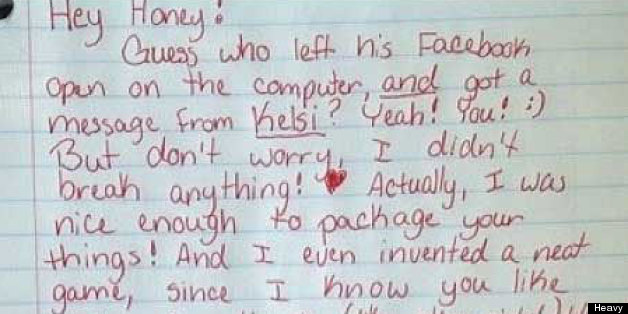 Hey Honey!
Guess who left his Facebook
open on the computer, and got a
message from Kelsi? Yeah! You! :)
But don't worry, I didn't
break anything! ♥ Actually, I was
nice enough to package your
things! And I even invented a neat
game, since I know you like
Heavy